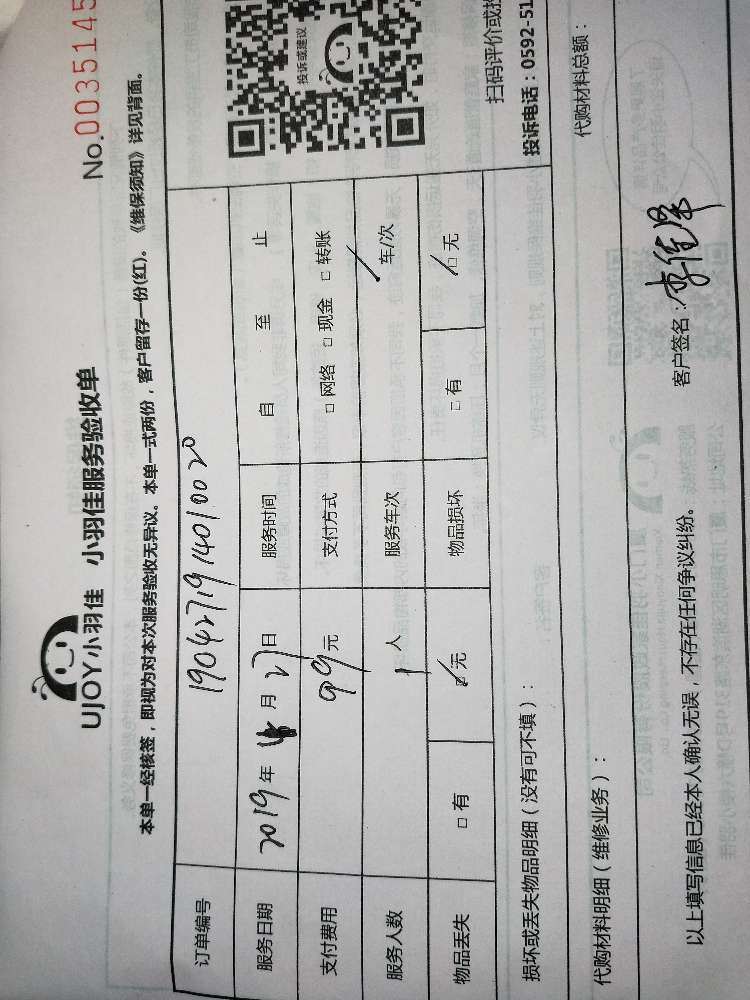 UJOY小羽佳 小羽佳服务验收单
No.0035145
本单一经核签，即视为对本次服务验收无异议。本单一式两份，客户留存一份(红)。《维保须知》详见背面。
订单编号 1904271914010020
服务日期 2019年 4月 27日 服务时间 自 至 止
支付费用 99元 支付方式 □ 网络 □ 现金 □ 转账
服务人数 1人 服务车次 / 车/次
物品丢失 □ 有 □ 无 物品损坏 □ 有 □ 无
投诉或建议
扫码评价或投
投诉电话：0592-51
损坏或丢失物品明细（没有可不填）：
代购材料明细（维修业务）：
代购材料总额：
以上填写信息已经本人确认无误，不存在任何争议纠纷。
客户签名：李佳泽